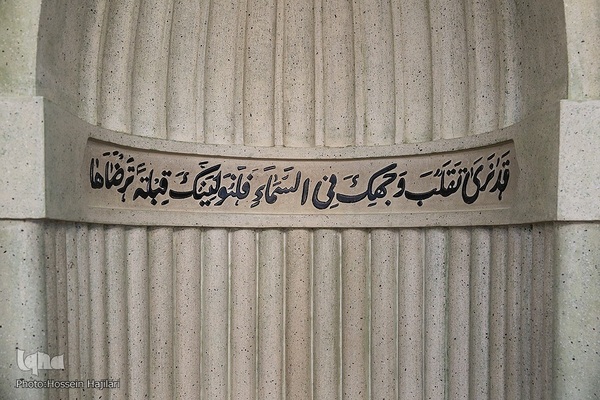 قَدْ نَرَىٰ تَقَلُّبَ وَجْهِكَ فِي السَّمَاءِ فَلَنُوَلِّيَنَّكَ قِبْلَةً تَرْضَاهَا
iqna
Photo:Hossein Hajilari